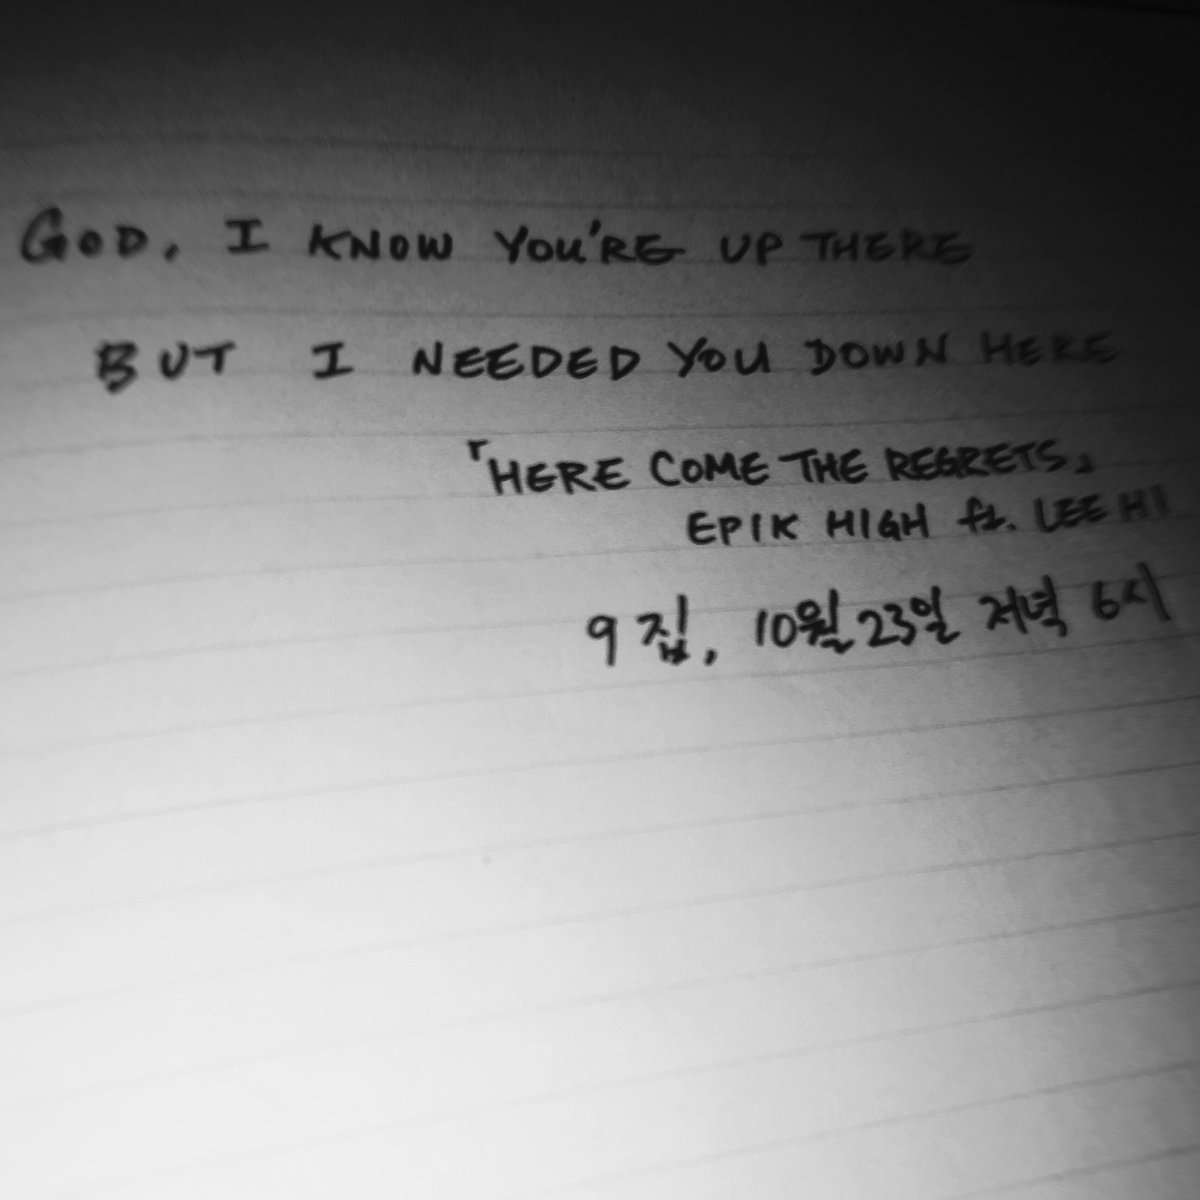 GOD, I KNOW YOU'RE UP THERE
BUT I NEEDED YOU DOWN HERE
「HERE COME THE REGRETS」
EPIK HIGH ft. LEE HI
9집, 10월 23일 저녁 6시